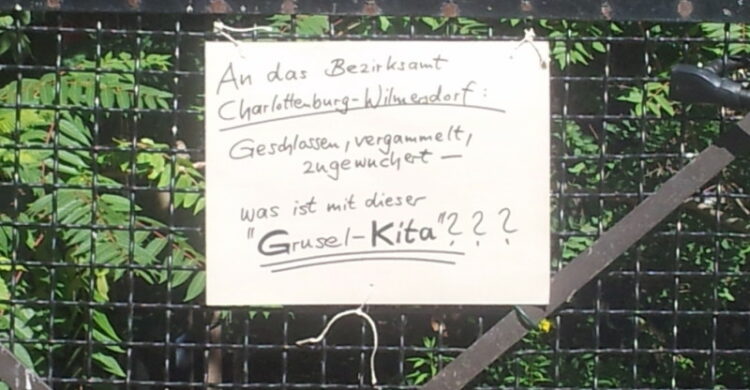 An das Bezirksamt
Charlottenburg-Wilmersdorf:
Geschlossen, vergammelt,
zugewuchert —
was ist mit dieser
"Grusel-Kita"???